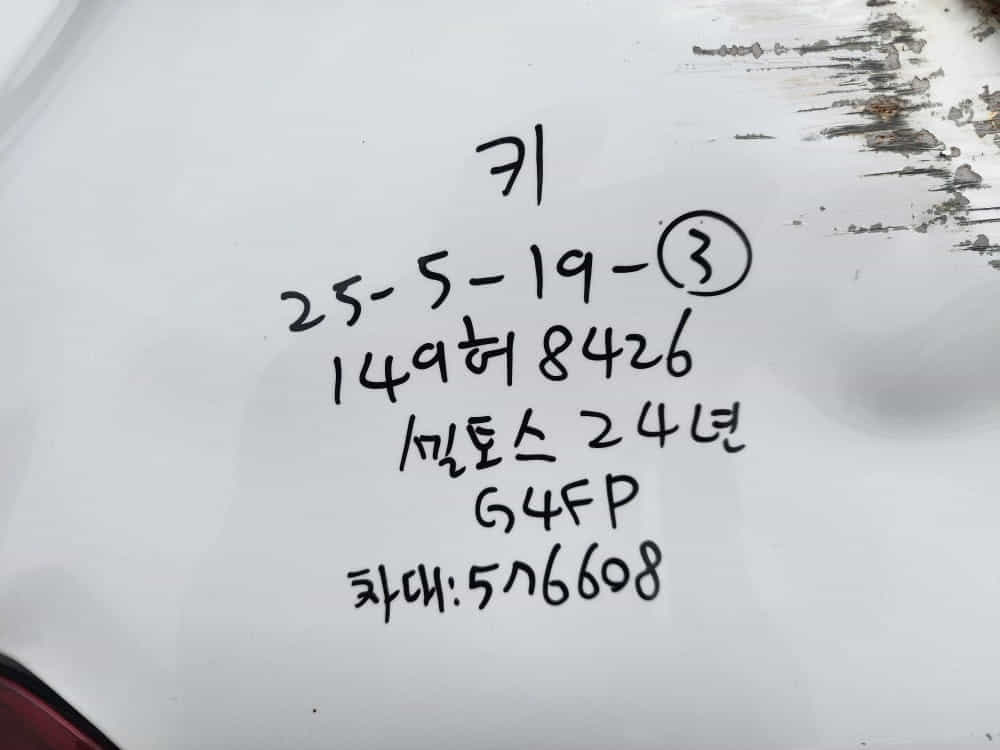 키
25-5-19-③
149허8426
셀토스 24년
G4FP
차대:576608